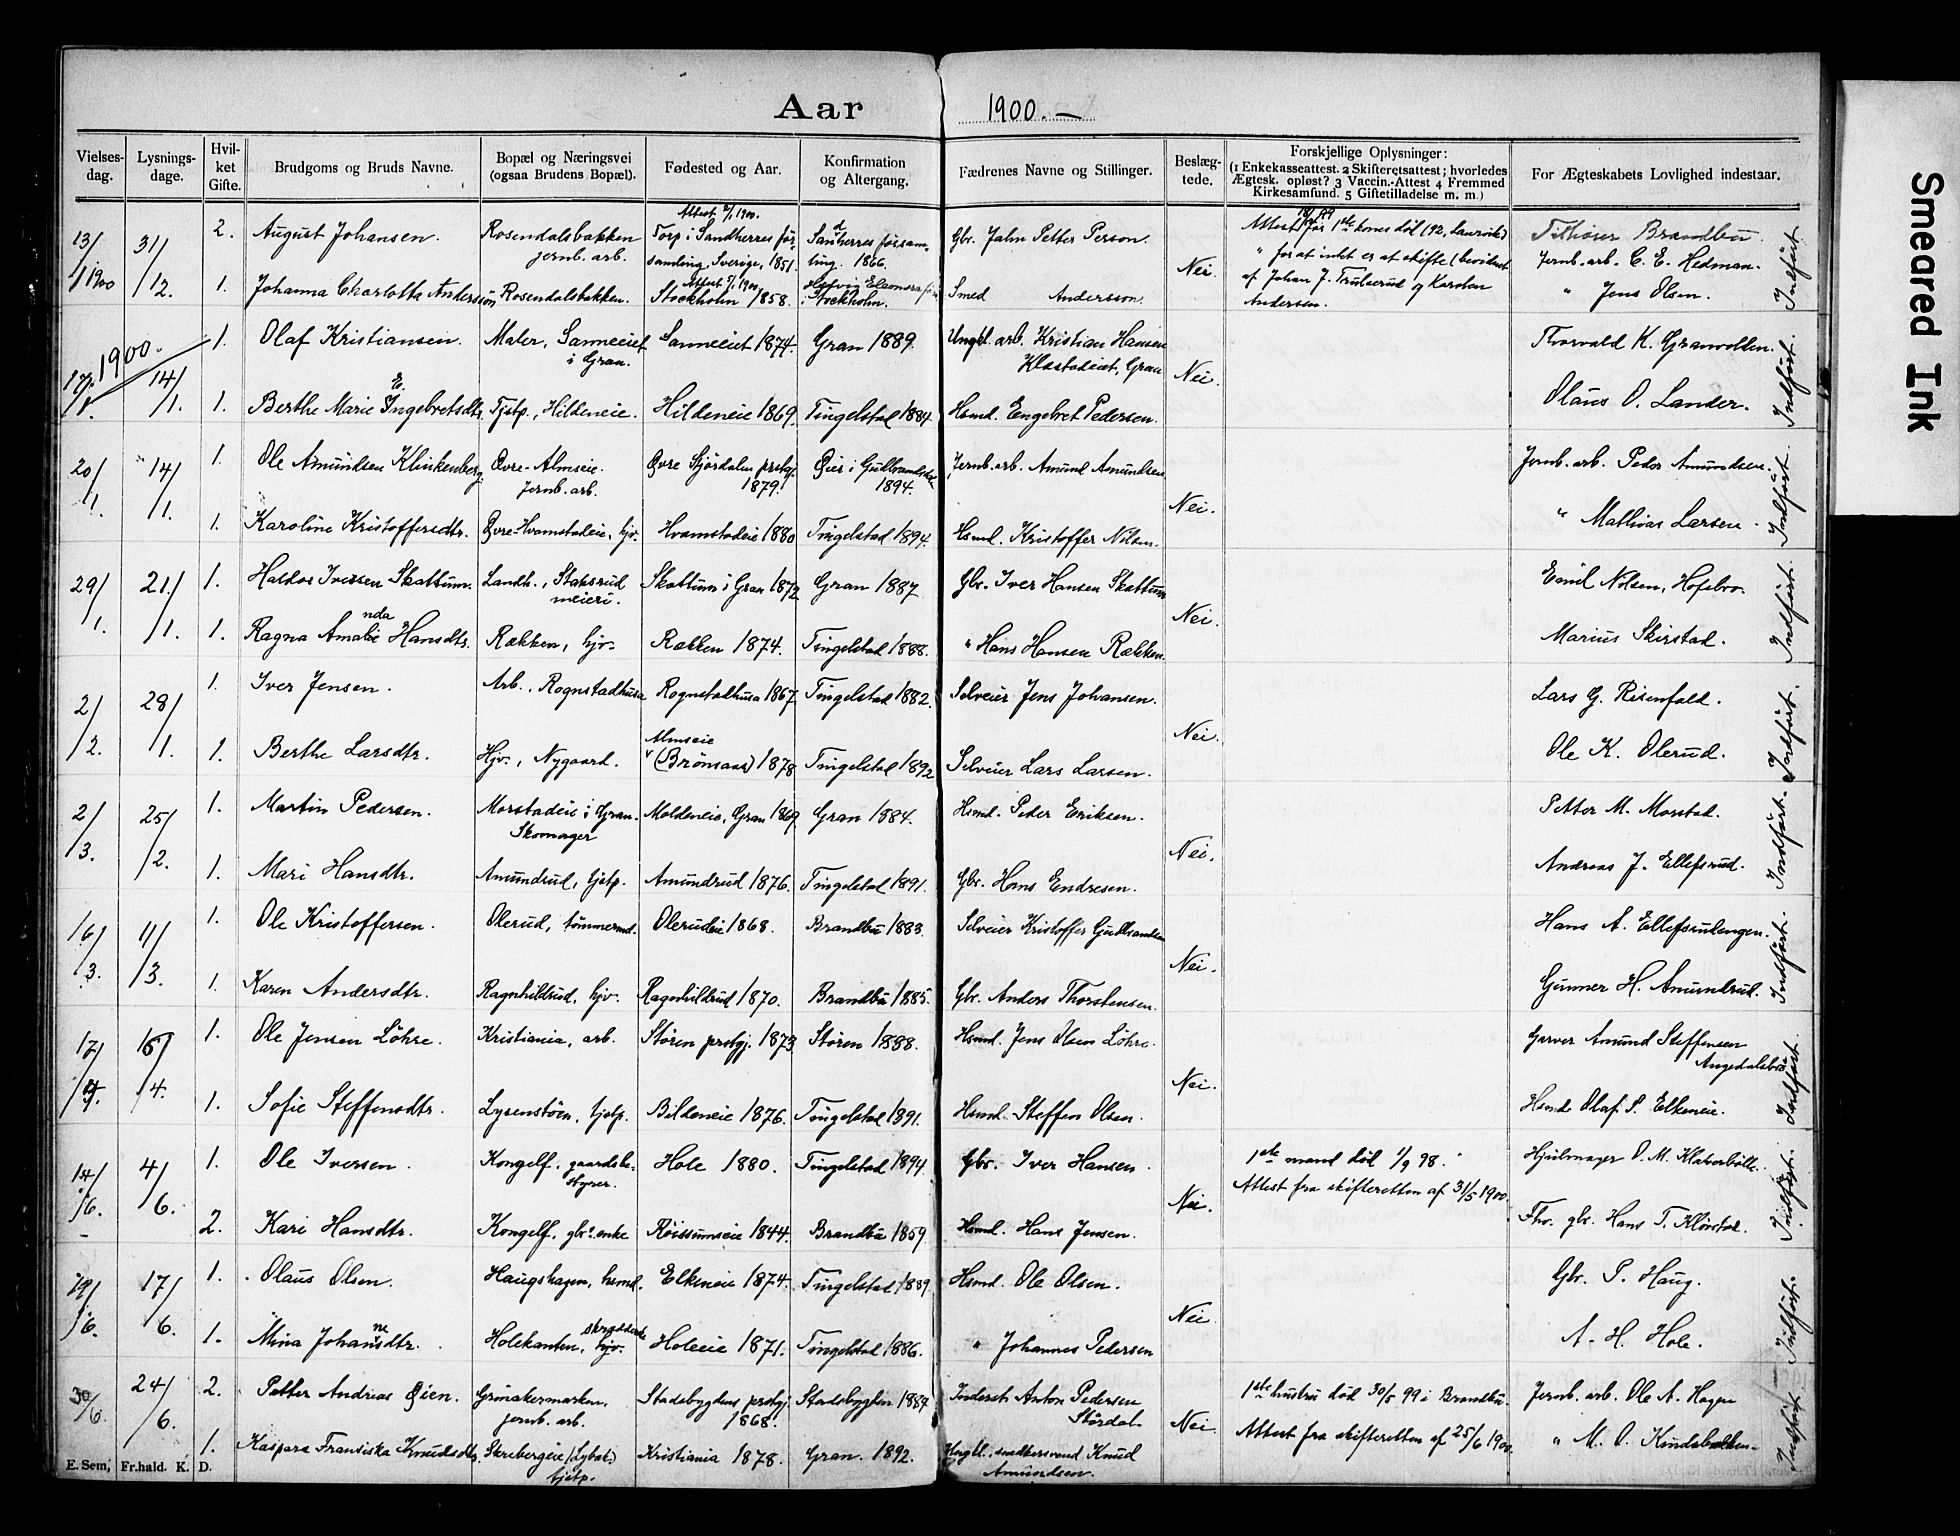 Aar 1900. —
Vielses-dag. Lysnings-dage. Hvil-ket Gifte. Brudgoms og Bruds Navne. Bopæl og Næringsvei (ogsaa Brudens Bopæl). Fødested og Aar. Konfirmation og Altergang. Fædrenes Navne og Stillinger. Beslæg-tede. Forskjellige Oplysninger: (1 Enkekasseattest. 2 Skifteretsattest; hvorledes Ægtesk. opløst? 3 Vaccin.-Attest 4 Fremmed Kirkesamfund. 5 Giftetilladelse m. m.) For Ægteskabets Lovlighed indestaar.
13/1 1900 31/12. 2. August Johansen. Rosendalsbakken jernb. arb. Torp i Sandherres forsamling, Sverige, 1851. Sandherres forsamling. 1866. Gbr. Jahn Petter Person. Nei. Brandbu.
1. Johanna Charlotta Andersson, Rosendalsbakken. Stockholm 1858. Stockholm. Smed Andersson. Andersen. Jernb. arb. C. E. Hedman. " Jens Olsen. Indført
1900. 17/1. 14/1. 1. Olaf Kristiansen. Maler, Sanneeiet i Gran. Sanneeiet 1874. Gran 1889. Ungkl. arb. Kristian Hansen Klæstadeiet, Gran Nei. Thorvald K. Granvollen.
1. Berthe Marie Ingebretsdtr. Tjstp., Hildeneie. Hildeneie 1869. Tingelstad 1884. Hsmd. Engebret Pedersen. Olaus O. Lander. Indført.
20/1. 14/1. 1. Ole Amundsen Klinkenberg. Øvre-Almseie. Jernb. arb. Øvre Stjørdalen prstgj. 1879. Øier i Gulbrandsdal 1894. Jernb. arb. Amund Amundsen Nei. Jernb. arb. Peder Amundsen.
1. Karoline Kristoffersdtr. Øvre-Hvamstadeie, hjv. Hvamstadeie 1880 Tingelstad 1894. Hsmd. Kristoffer Nilsen. " Mathias Larsen. Indført.
29/1. 21/1. 1. Haldor Iversen Skattum. Landh., Staksrud meieri. Skattum i Gran 1872 Gran 1887. Gbr. Iver Hansen Skattum Nei. Emil Nilsen, Hofsbro.
1. Ragna Amalie nda Hansdtr. Rækken, hjv. Rækken 1874. Tingelstad 1888. " Hans Hansen Rækken. Marius Skirstad. Indført.
2/2. 28/1. 1. Iver Jensen. Arb., Rognstadhusa Rognstadhusa 1867 Tingelstad 1882. Selveier Jens Johansen. Nei. Lars G. Risenfald.
1. Berthe Larsdtr. Hjv., Nygaard. Almseie (Brønsaas) 1878 Tingelstad 1892 Selveier Lars Larsen. Ole K. Olerud. Indført.
2/3. 25/2. 1. Martin Pedersen. Morstadeie i Gran. Skomager Moldeneie, Gran 1869 Gran 1884. Hsmd. Peder Eriksen. Nei. Petter M. Morstad.
1. Mari Hansdtr. Amundrud, tjstp. Amundrud 1876. Tingelstad 1891. Gbr. Hans Endresen. Andreas J. Ellefsrud. Indført.
16/3. 11/3. 1. Ole Kristoffersen. Olerud, tømmermd. Olerudeie 1868. Brandbu 1883. Selveier Kristoffer Gudbrandsen Nei. Hans A. Ellefsrudengen.
1. Karen Andersdtr. Ragnhildrud, hjv. Ragnhildrud 1870. Brandbu 1885. Gbr. Anders Thorstensen. Gunner H. Amundrud. Indført.
17/4. 15/4. 1. Ole Jensen Løhre. Kristiania, arb. Støren prstgj. 1873 Støren 1888. Hsmd. Jens Olsen Løhre. Nei. Garver Amund Steffensen Augedalsbro
1. Sofie Steffensdtr. Lysenstøen, tjstp. Bildeneie 1876. Tingelstad 1891. Hsmd. Steffen Olsen. Hsmd. Olaf S. Elkeneie. Indført.
14/6. 4/6. 1. Ole Iversen. Kongelf. gaardsbestyrer. Hole 1880. Tingelstad 1894 Gbr. Iver Hansen. Nei. 1ste mand død 1/9 98. Hjulmager O. M. Klæverbølle.
2. Kari Hansdtr. Kongelf. gbr. enke Røissumseie 1844. Brandbu 1859. Hsmd. Hans Jensen. Attest fra skifteretten af 31/5 1900. Fhv. gbr. Hans T. Kløvstad. Indført.
19/6. 17/6. 1. Olaus Olsen. Haugshagen, hsmd. Elkeneie 1874. Tingelstad 1889. Hsmd. Ole Olsen. Nei. Gbr. P. Haug.
1. Mina Johannesdtr. Holekanten, skrædderske hjv. Holeeie 1871. Tingelstad 1886. " Johannes Pedersen A. H. Hole. Indført.
30/6. 24/6. 2. Petter Andreas Øien. Grinakermarken, jernb. arb. Stadsbygdens prstgj. 1868. Stadsbygden 1884 Inderst. Anton Pedersen Stördal. Nei. 1ste hustru død 30/5 99 i Brandbu. Jernb. arb. Ole A. Hagen
1. Kaspara Fransiska Knudsdtr. Skrebergeie (Lybek) tjstp. Kristiania 1878. Gran. 1892. Ungkl. Knud Amundsen. Attest fra skifteretten af 25/6 1900 " M. O. Kindsbakken. Indført
E. Sem, Fr.hald. K. D.
Smeared Ink